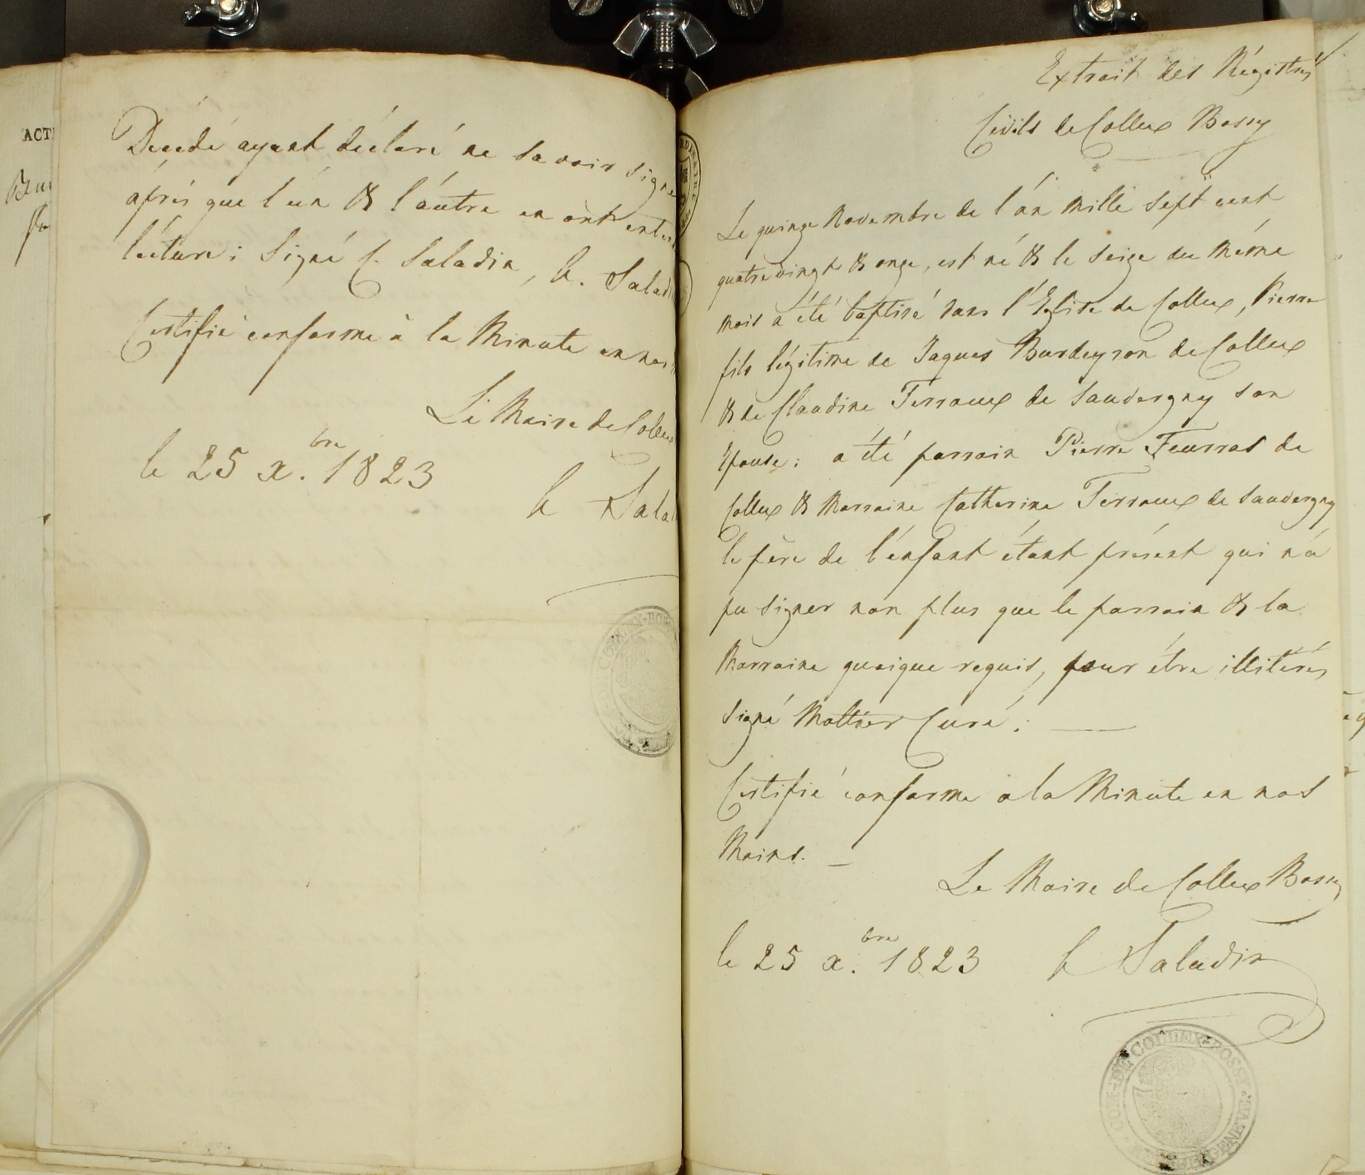 ACT
Décédé ayant déclaré ne savoir signe
áprés que l'ún & l'áutre en ònt enten
lécture; Signé C. Saladin, h. Salad
Certifié conforme à la Minute en nos
Le Maire de Collex
le 25 x.bre 1823
h Sala
Extrait des Régistres
Civils de Collex Bossy
Le quinze Novembre de l'án Mille Sépt cent
quatrevingt & onze, est né & le Seize du Méme
Mois a été baptisé dans l'Eglise de Collex, Pierre
fils légitime de Jaques Burdeyron de Collex
& de Claudine Terroux de Sauvergny son
Epouse; a été parrain Pierre Feurrat de
Collex & Marraine Catherine Terroux de Sauvergny
le pére de l'énfant étant présent qui n'á
pu signer non plus que le parrain & la
Marraine quoique requis, pour étre illitérés
signé Mottier Curé;
Certifié conforme a la Minute en nos
Mains.
Le Maire de Collex Bossy
le 25 x.bre 1823 h Saladin
COM. DE COLLEX-BOSSY